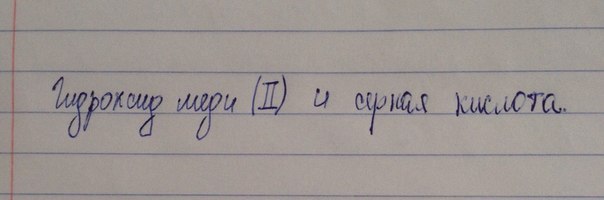 Гидроксид меди (II) и серная кислота.